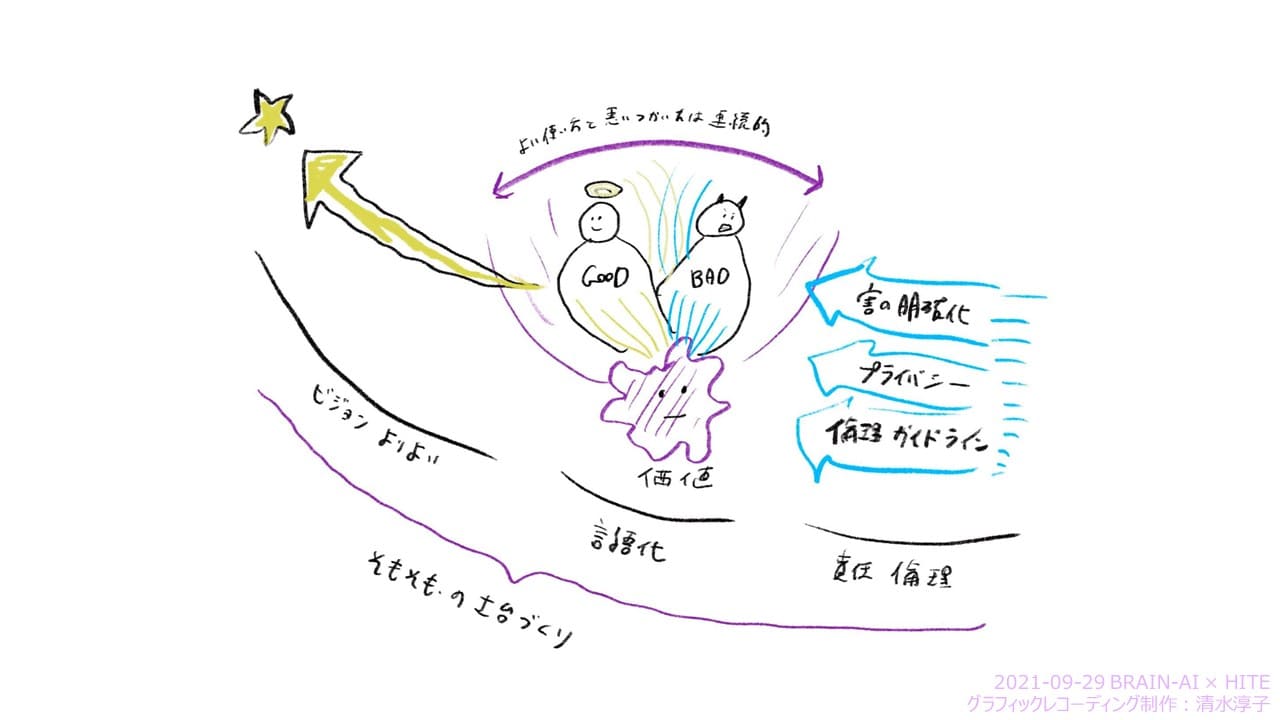 よい使い方と悪いつかい方は連続的
GOOD
BAD
害の明確化
プライバシー
倫理ガイドライン
価値
ビジョン よりよい
言語化
責任 倫理
そもそもの土台づくり
2021-09-29 BRAIN-AI × HITE
グラフィックレコーディング制作：清水淳子